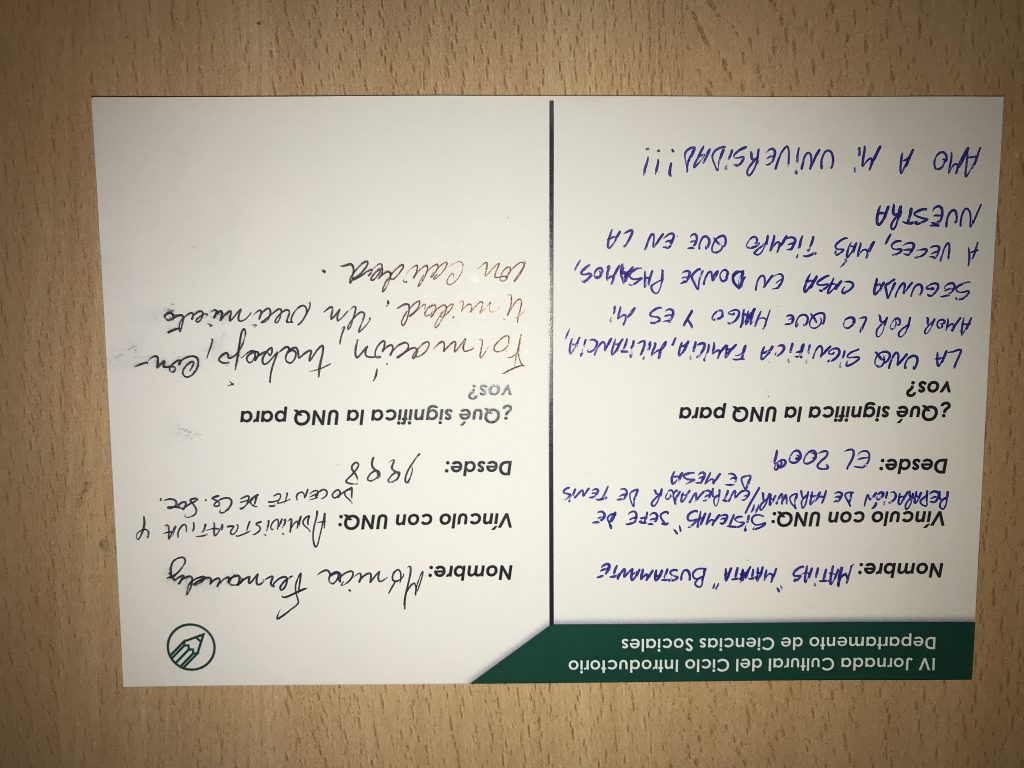 IV Jornada Cultural del Ciclo Introductorio
Departamento de Ciencias Sociales
Nombre: MATÍAS "MATATA" BUSTAMANTE
Vínculo con UNQ: SISTEMAS "JEFE DE
REPARACIÓN DE HARDWAR"/ENTRENADOR DE TENIS
DE MESA
Desde: EL 2009
¿Qué significa la UNQ para
vos?
LA UNQ SIGNIFICA FAMILIA, MILITANCIA,
AMOR POR LO QUE HAGO Y ES MI
SEGUNDA CASA EN DONDE PASAMOS,
A VECES, MÁS TIEMPO QUE EN LA
NUESTRA
AMO A MI UNIVERSIDAD!!!
Nombre: Mónica Fernandez
Vínculo con UNQ: ADMINISTRATIVA Y
DOCENTE DE Cs. Soc.
Desde: 1998
¿Qué significa la UNQ para
vos?
Formación, trabajo, com-
unidad. Un crecimiento
con calidad.